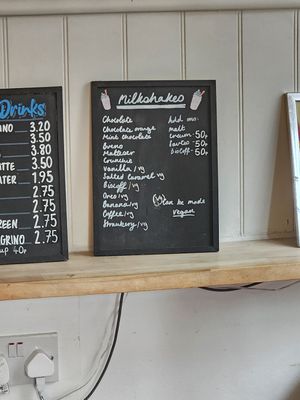 Drinks
ANO 3.20
3.50
3.80
ATTE 3.50
ATER 1.95
2.75
2.75
2.75
EEN 2.75
GRINO 2.75
up 40p
Milkshakes
Chocolate
Chocolate orange
Mint chocolate
Bueno
Malteser
Crunchie
Vanilla/vg
Salted Caramel vg
Biscoff/vg
Oreo/vg
Banana/vg
Coffee/vg
Strawberry/vg
Add
malt
cream 50p
Sauces 50p
biscoff 50p
(vg) Can be made
vegan